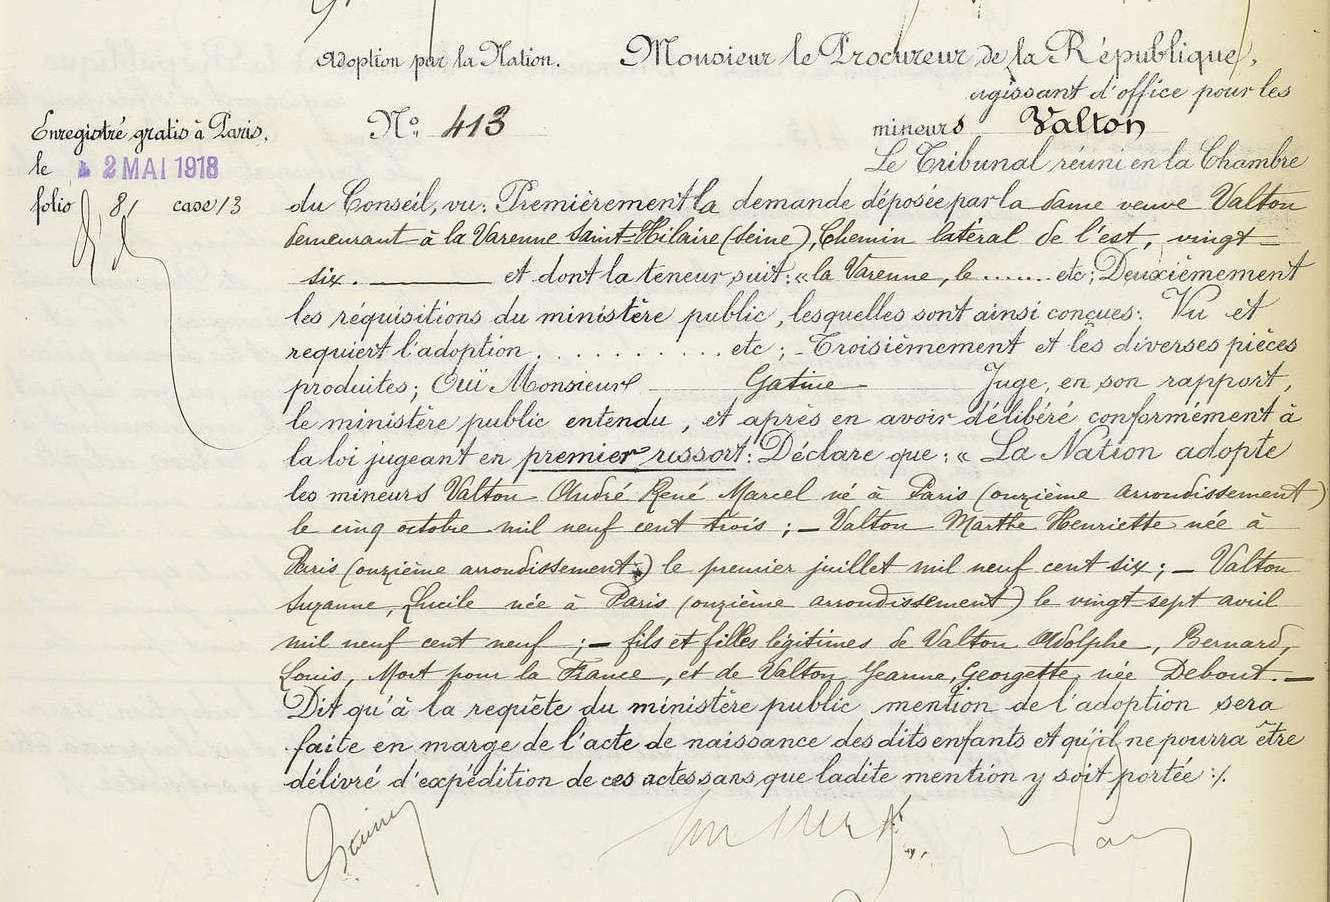 Adoption par la Nation. Monsieur le Procureur de la République,
agissant d'office pour les
Enregistré gratis à Paris, N° 413 mineurs Valton
le 2 MAI 1918 Le Tribunal réuni en la Chambre
folio 81 case 13 du Conseil, vu: Premièrement la demande déposée par la dame veuve Valton
demeurant à la Varenne Saint-Hilaire (Seine), Chemin latéral de l'est, vingt-
six. et dont la teneur suit: «la Varenne, le ....... etc; Deuxièmement
les réquisitions du ministère public, lesquelles sont ainsi conçues: Vu et
requiert l'adoption . . . . . . . . . . etc; - Troisièmement et les diverses pièces
produites; Ouï Monsieur Gatine Juge, en son rapport,
le ministère public entendu, et après en avoir délibéré conformément à
la loi jugeant en premier ressort: Déclare que: « La Nation adopte
les mineurs Valton André René Marcel né à Paris (onzième arrondissement)
le cinq octobre mil neuf cent trois; - Valton Marthe Henriette née à
Paris (onzième arrondissement) le premier juillet mil neuf cent six; - Valton
Suzanne, Lucile née à Paris (onzième arrondissement) le vingt-sept avril
mil neuf cent neuf; - fils et filles légitimes de Valton Adolphe, Bernard,
Louis, Mort pour la France, et de Valton, Jeanne, Georgette, née Debout. -
Dit qu'à la requête du ministère public mention de l'adoption sera
faite en marge de l'acte de naissance des dits enfants et qu'il ne pourra être
délivré d'expédition de ces actes sans que ladite mention y soit portée ./.